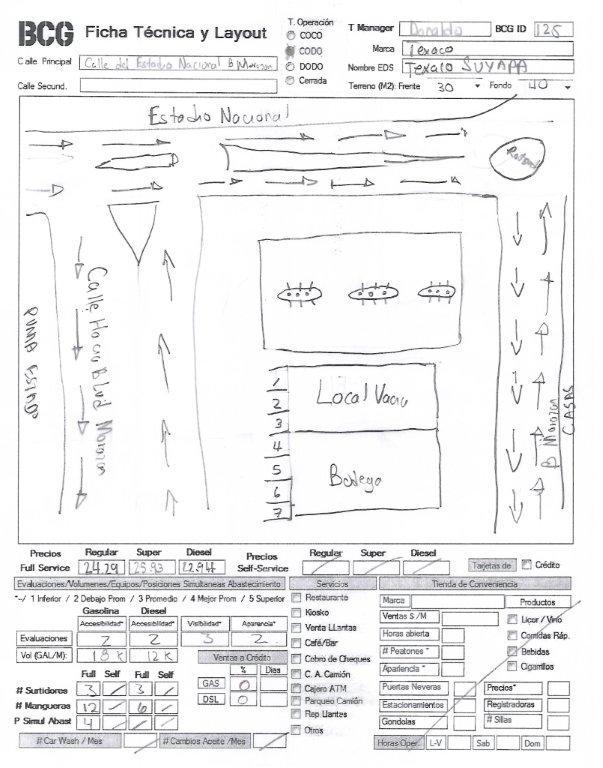 BCG Ficha Técnica y Layout
T. Operación
COCO
CODO
DODO
Cerrada
T Manager Donaldo BCG ID 125
Marca Texaco
Nombre EDS Texaco SUYAPA
Terreno (M2): Frente 30 Fondo 40
Calle Principal Calle del Estadio Nacional B Morazan
Calle Secund.
Estadio Nacional
Calle Hacia Blvd Morazan
PUMA
Local Vacio
Bodega
1
2
3
4
5
6
7
B Morazan
CASAS
Precios Regular Super Diesel
Full Service 24.29 25.93 22.94
Precios Regular Super Diesel
Self-Service
Evaluaciones/Volumenes/Equipos/Posiciones Simultaneas Abastecimiento
*-/ 1 Inferior / 2 Debajo Prom / 3 Promedio / 4 Mejor Prom / 5 Superior
Gasolina Diesel
Accesibilidad* Accesibilidad* Visibilidad* Apariencia*
Evaluaciones 2 2 3 2
Vol (GAL/M): 18 K 12 K
Full Self Full Self
# Surtidores 3 3
# Mangueras 12 6
P Simul Abast 4
Ventas a Crédito
% Dias
GAS 0
DSL 0
# Car Wash / Mes
# Cambios Aceite /Mes
Servicios
Restaurante
Kiosko
Venta LLantas
Café/Bar
Cobro de Cheques
C. A. Camión
Cajero ATM
Parqueo Camión
Rep Llantas
Otros
Tarjetas de Crédito
Tienda de Conveniencia
Marca
Ventas $/M
Horas abierta
# Peatones *
Apariencia *
Productos
Licor / Vino
Comidas Ráp.
Bebidas
Cigarrilos
Puertas Neveras
Precios*
Estacionamientos
Registradoras
Gondolas
# Sillas
Horas Oper. L-V Sab Dom